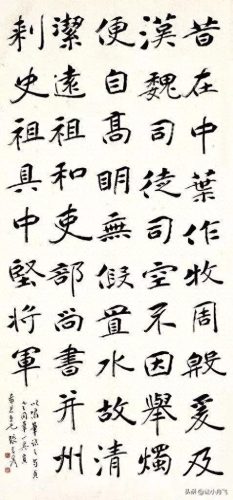 昔在中葉作牧周殷爰及
漢魏司徒司空不因舉燭
便自高明無假置水故清
潔遠祖和吏部尚書并州
刺史祖具中堅將軍
头条